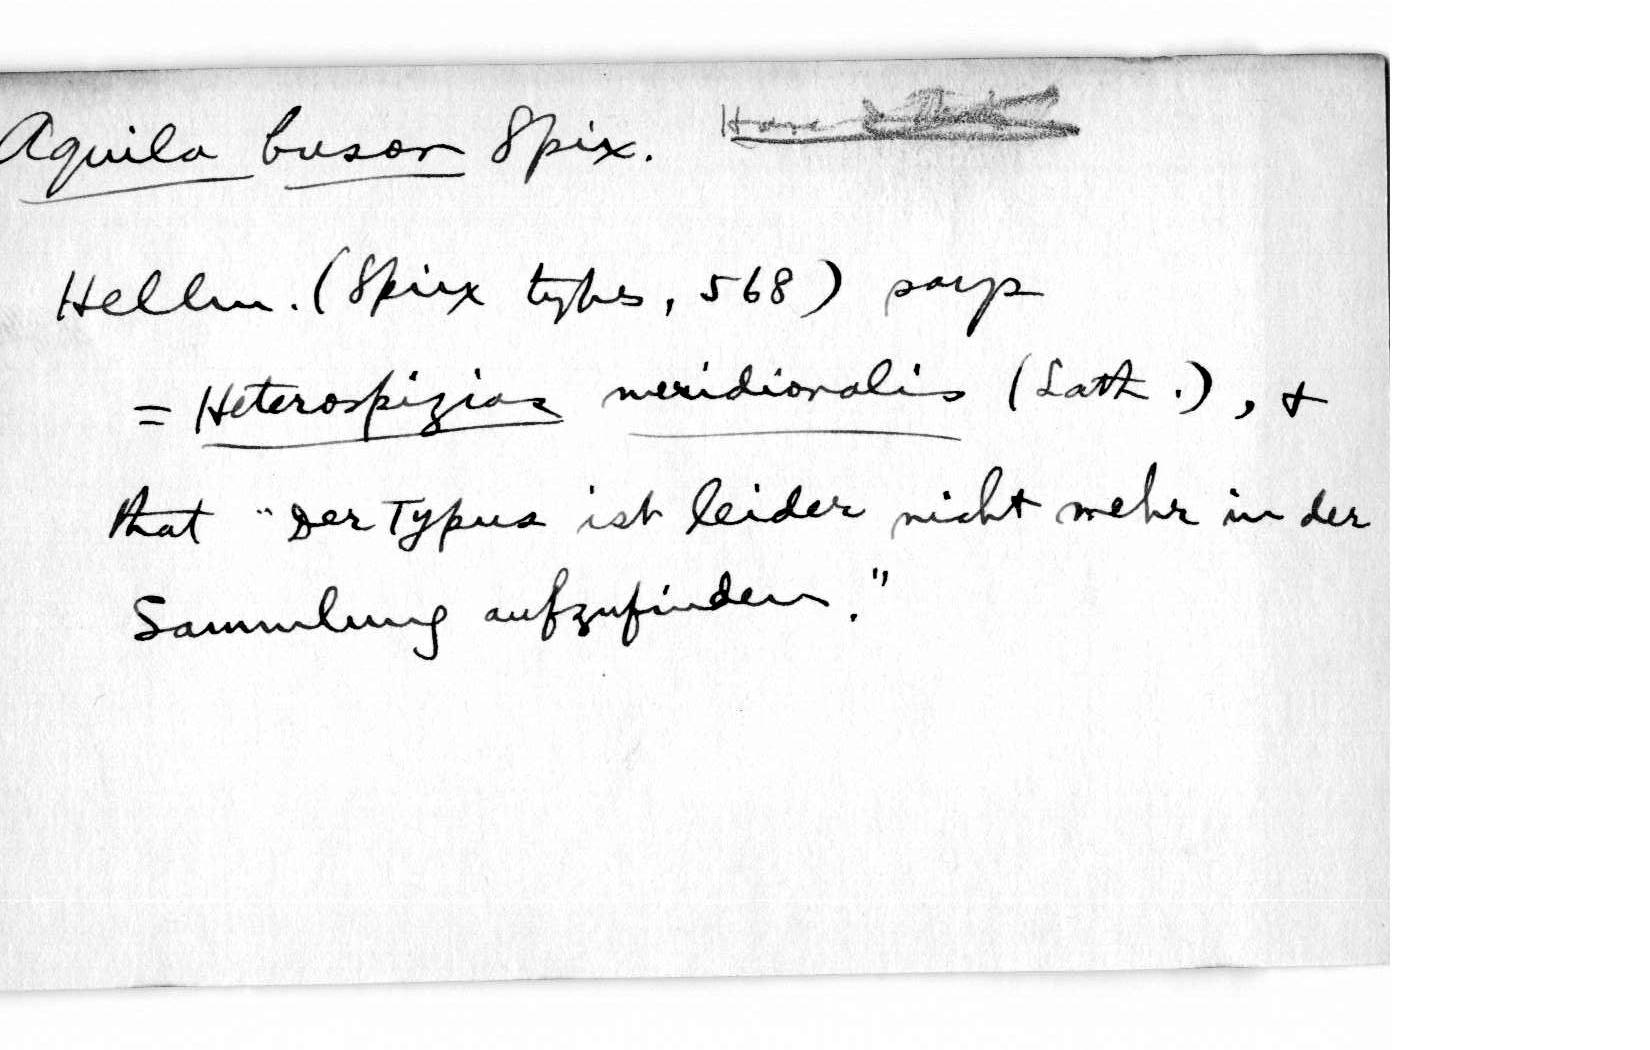 Aquila buson Spix.
Hellm. (Spix types, 568) says
= Heterospizias meridionalis (Lath.), &
that "Der Typus ist leider nicht mehr in der
Sammlung aufzufinden."